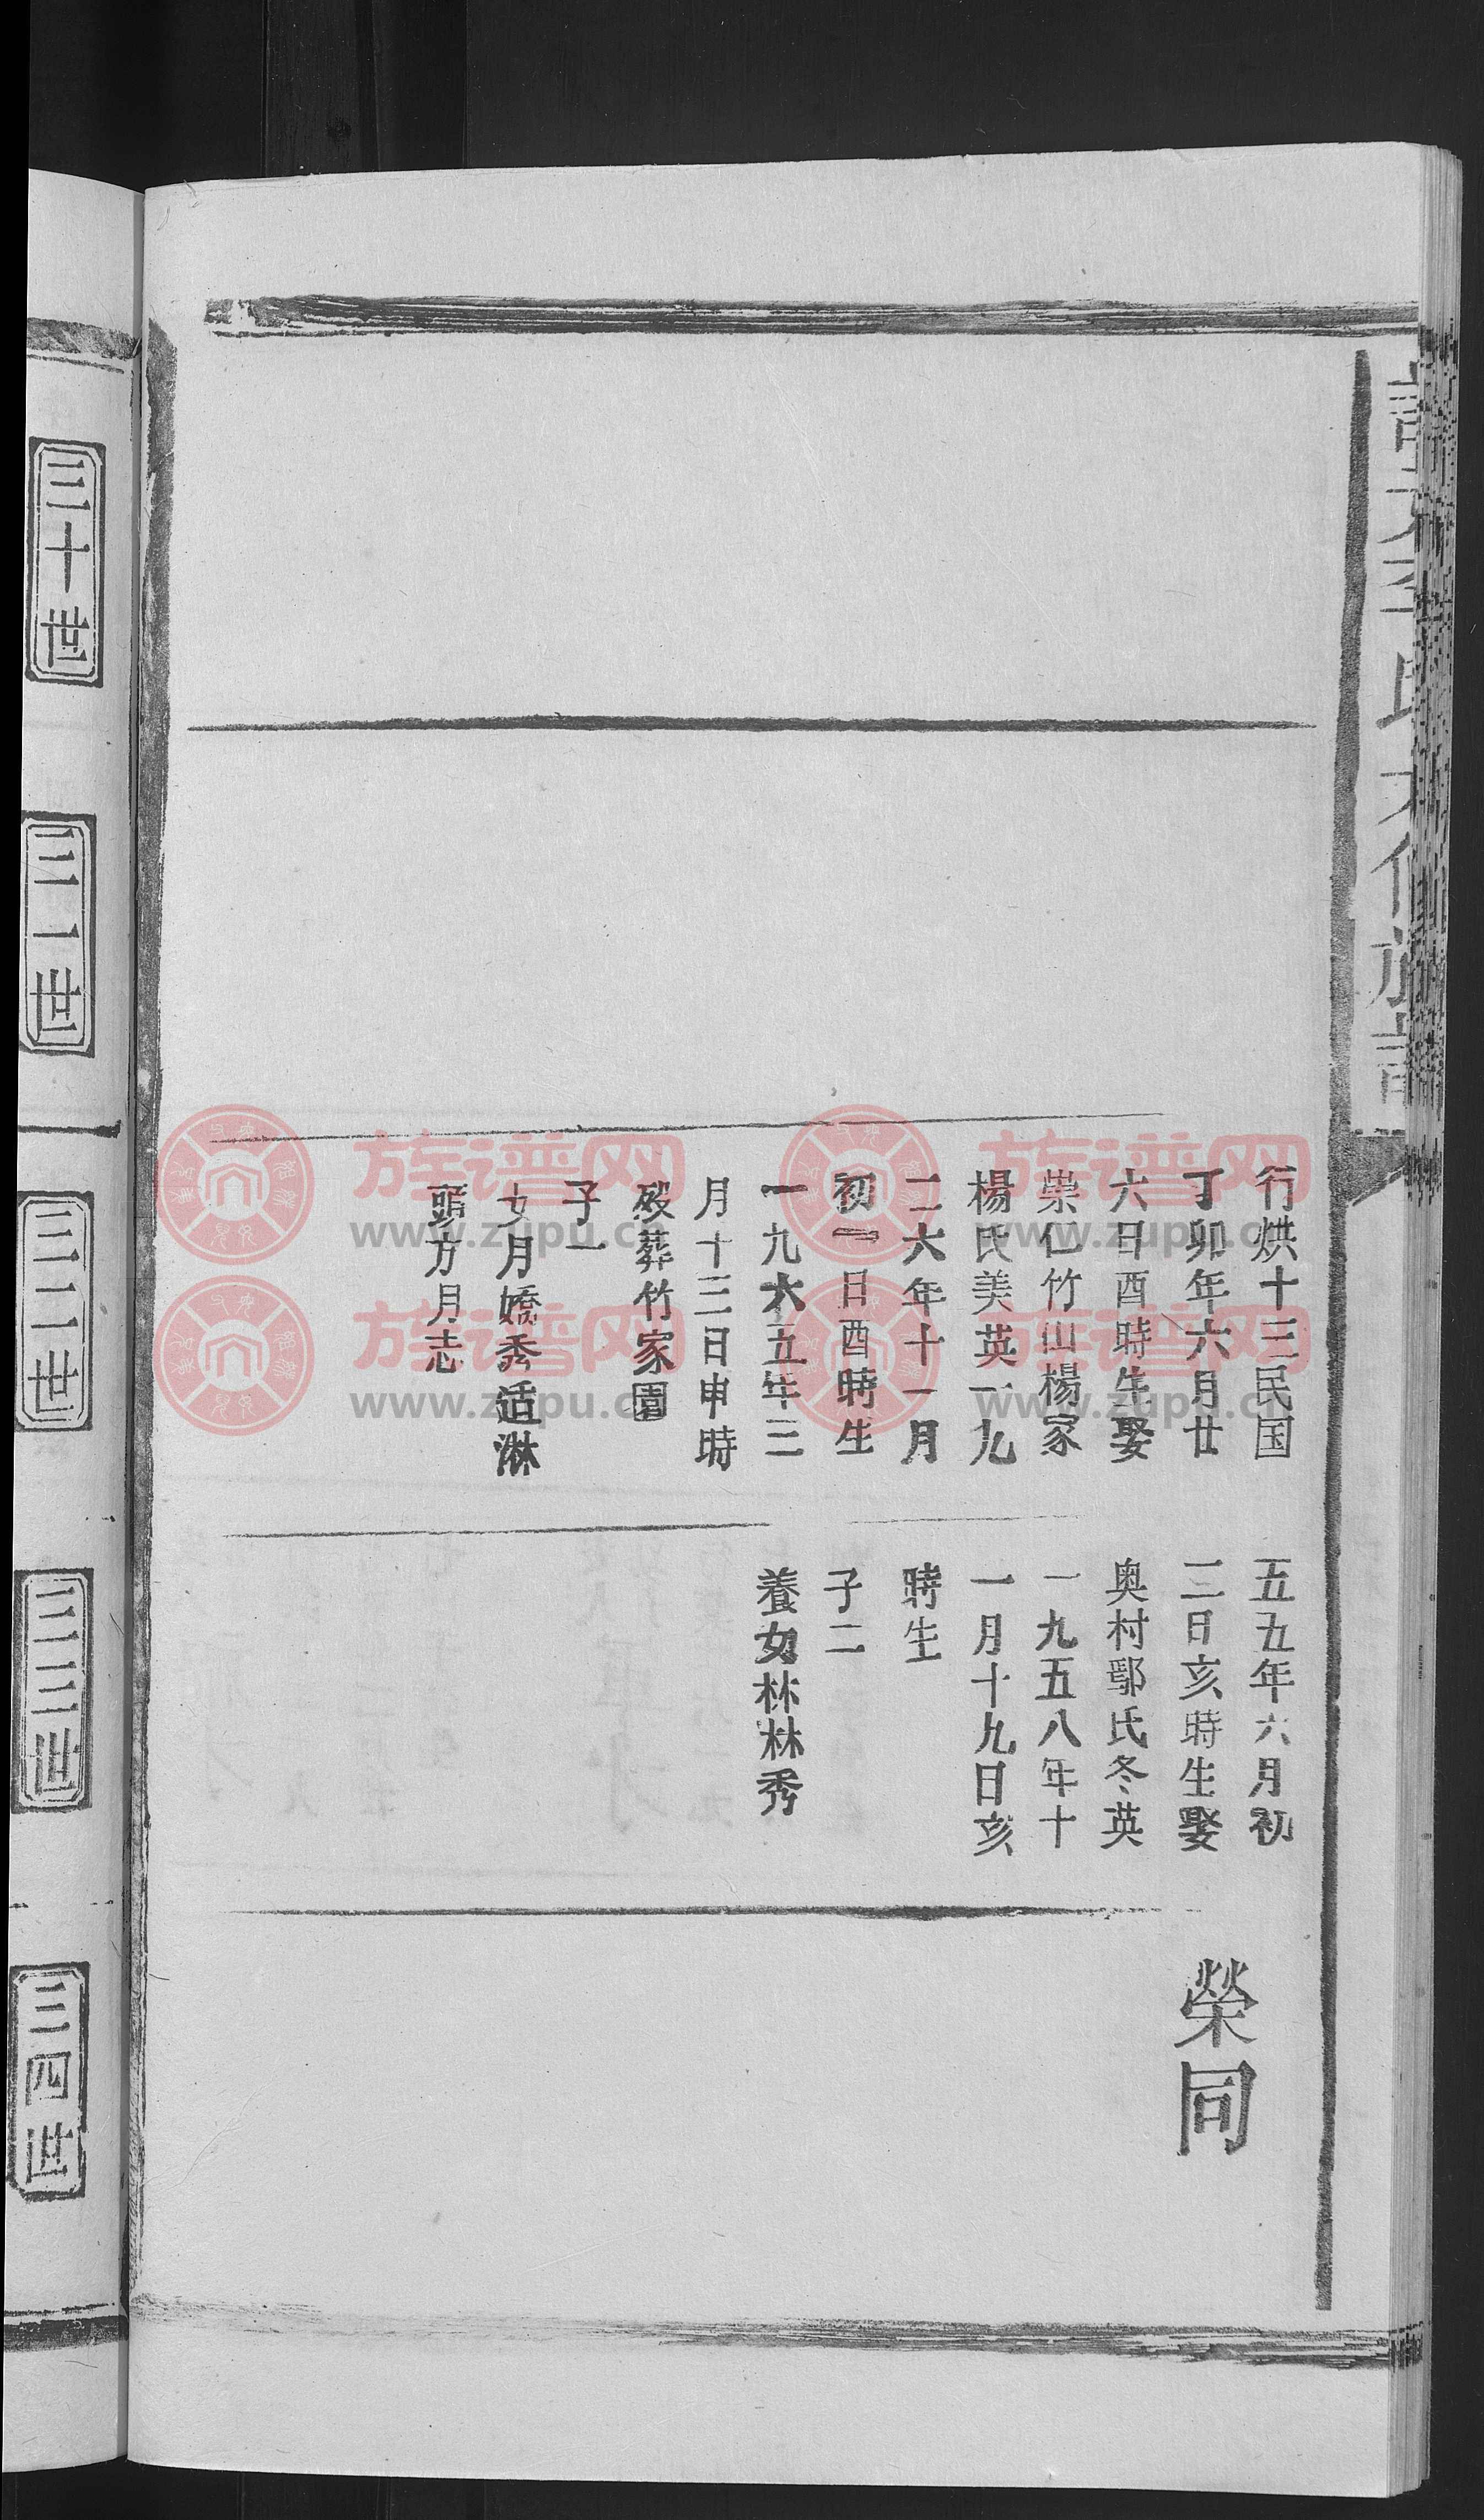 行烘十三民国
丁卯年六月廿
六日酉時生娶
崇仁竹山楊家
楊氏美英一九
二六年十一月
初一日酉時生
一九六五年三
月十三日申時
殁葬竹家園
子一
女月嬌秀适淋
頭方月志
五五年六月初
三日亥時生娶
奥村鄢氏冬英
一九五八年十
一月十九日亥
時生
子二
養女林林秀
榮同
三十世
三一世
三二世
三三世
三四世
族谱网
www.zupu.cn
族谱网
www.zupu.cn
族谱网
www.zupu.cn
族谱网
www.zupu.cn